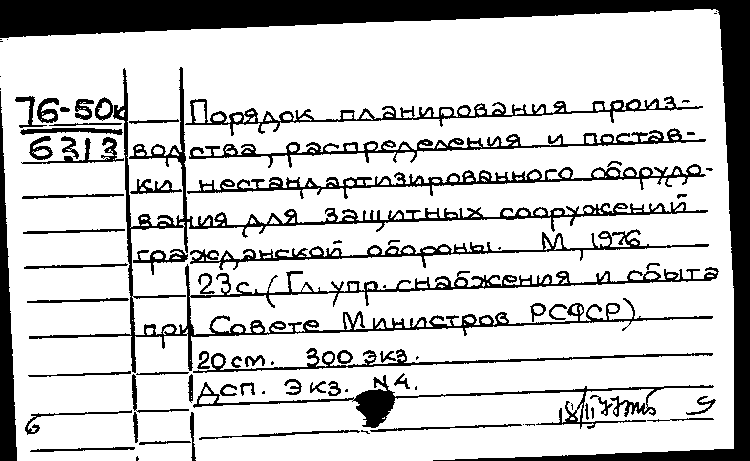 76-50к Порядок планирования произ-
6313 водства, распределения и постав-
ки нестандартизированного оборудо-
вания для защитных сооружений
гражданской обороны. М., 1976.
23с. (Гл. упр. снабжения и сбыта
при Совете Министров РСФСР).
20см. 300 экз.
ДСП. Экз. №4.
18/II 77
6